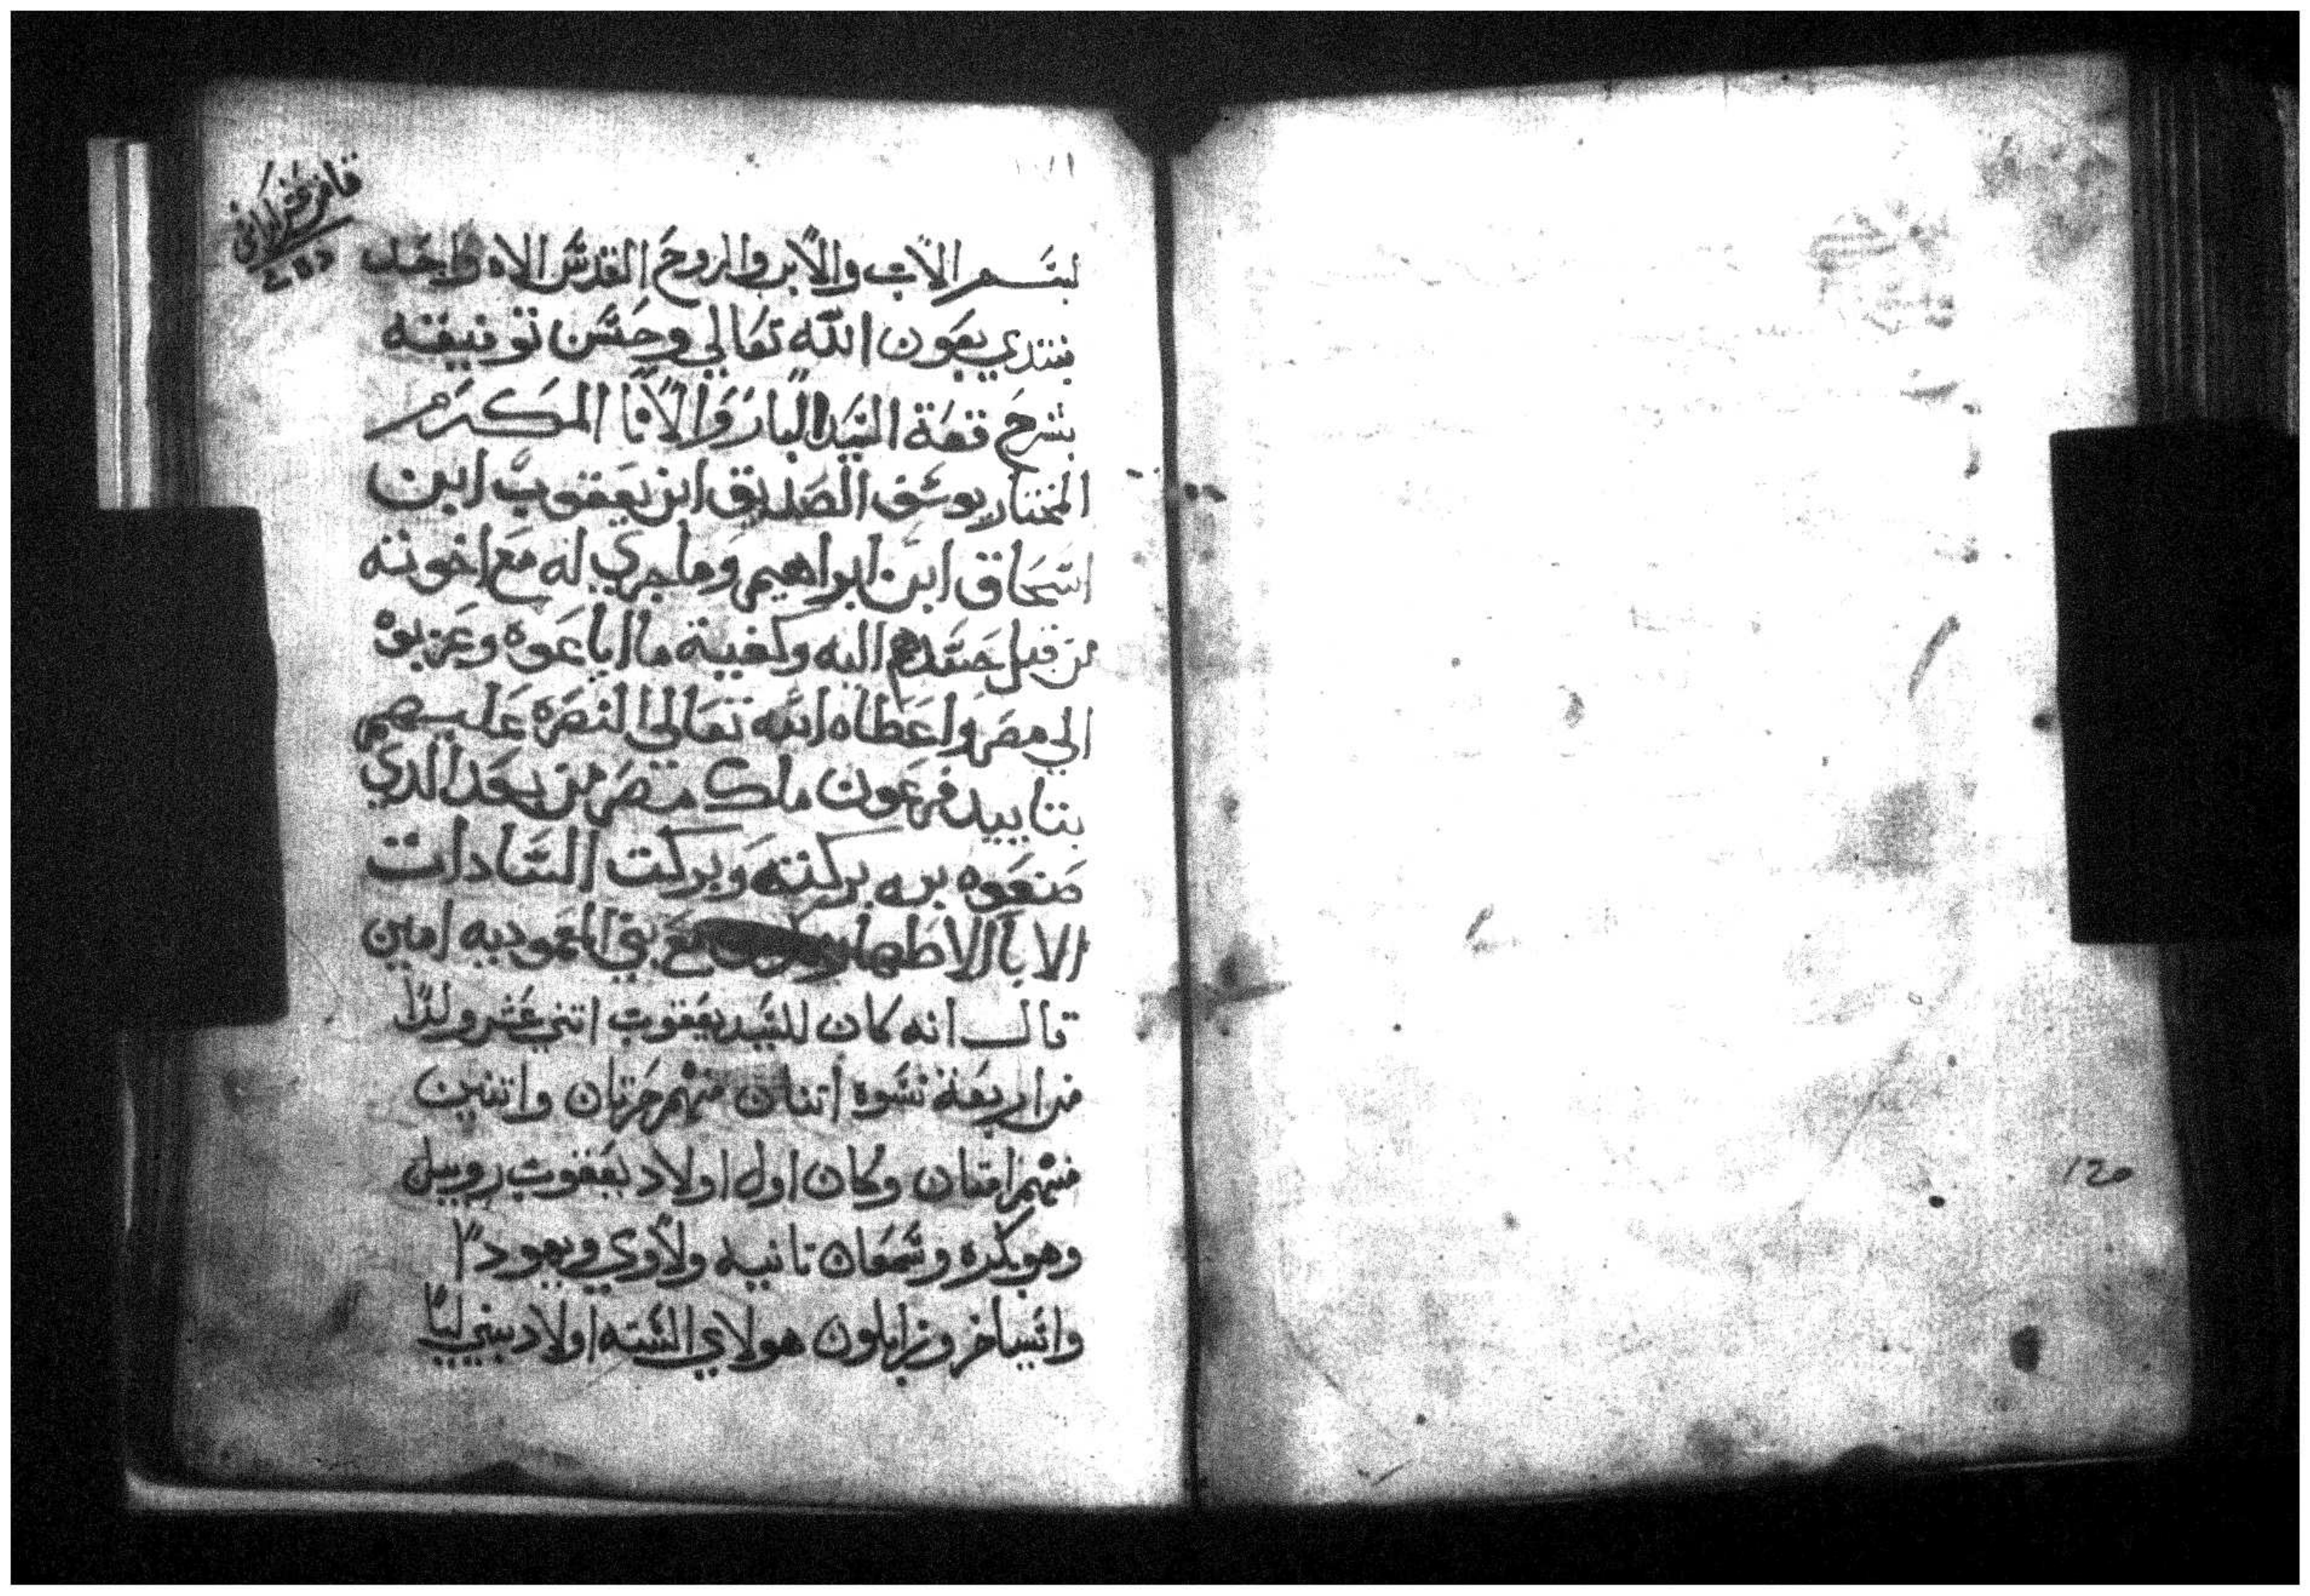 بسم الاب والابن والروح القدس الاه واحد
نبتدي بعون الله تعالي وحسن توفيقه
بشرح قصة السيد البار والانا المكرم
المختار يوسف الصديق ابن يعقوب ابن
اسحاق ابن ابراهيم وما جري له مع اخوته
من قبل حسدهم اليه وكفية ما اباعوه وغربوه
الي مصر واعطاه الله تعالي النصره عليهم
بتاييد فرعون ملك مصر من بعد الدي
صنعوه به بركته وبركت السادات
الابا الاطهار مع بني المعموديه امين
قال انه كان للسيد يعقوب اتني عشر ولدًا
من اربعة نسوه اتنان منهم حرتان واتنين
منهم امتان وكان اول اولاد يعقوب روبيل
وهو بكره وشمعان تانيه ولاوي ويهودا
وايساخر وزابلون هولاي السته اولاد بني ليا